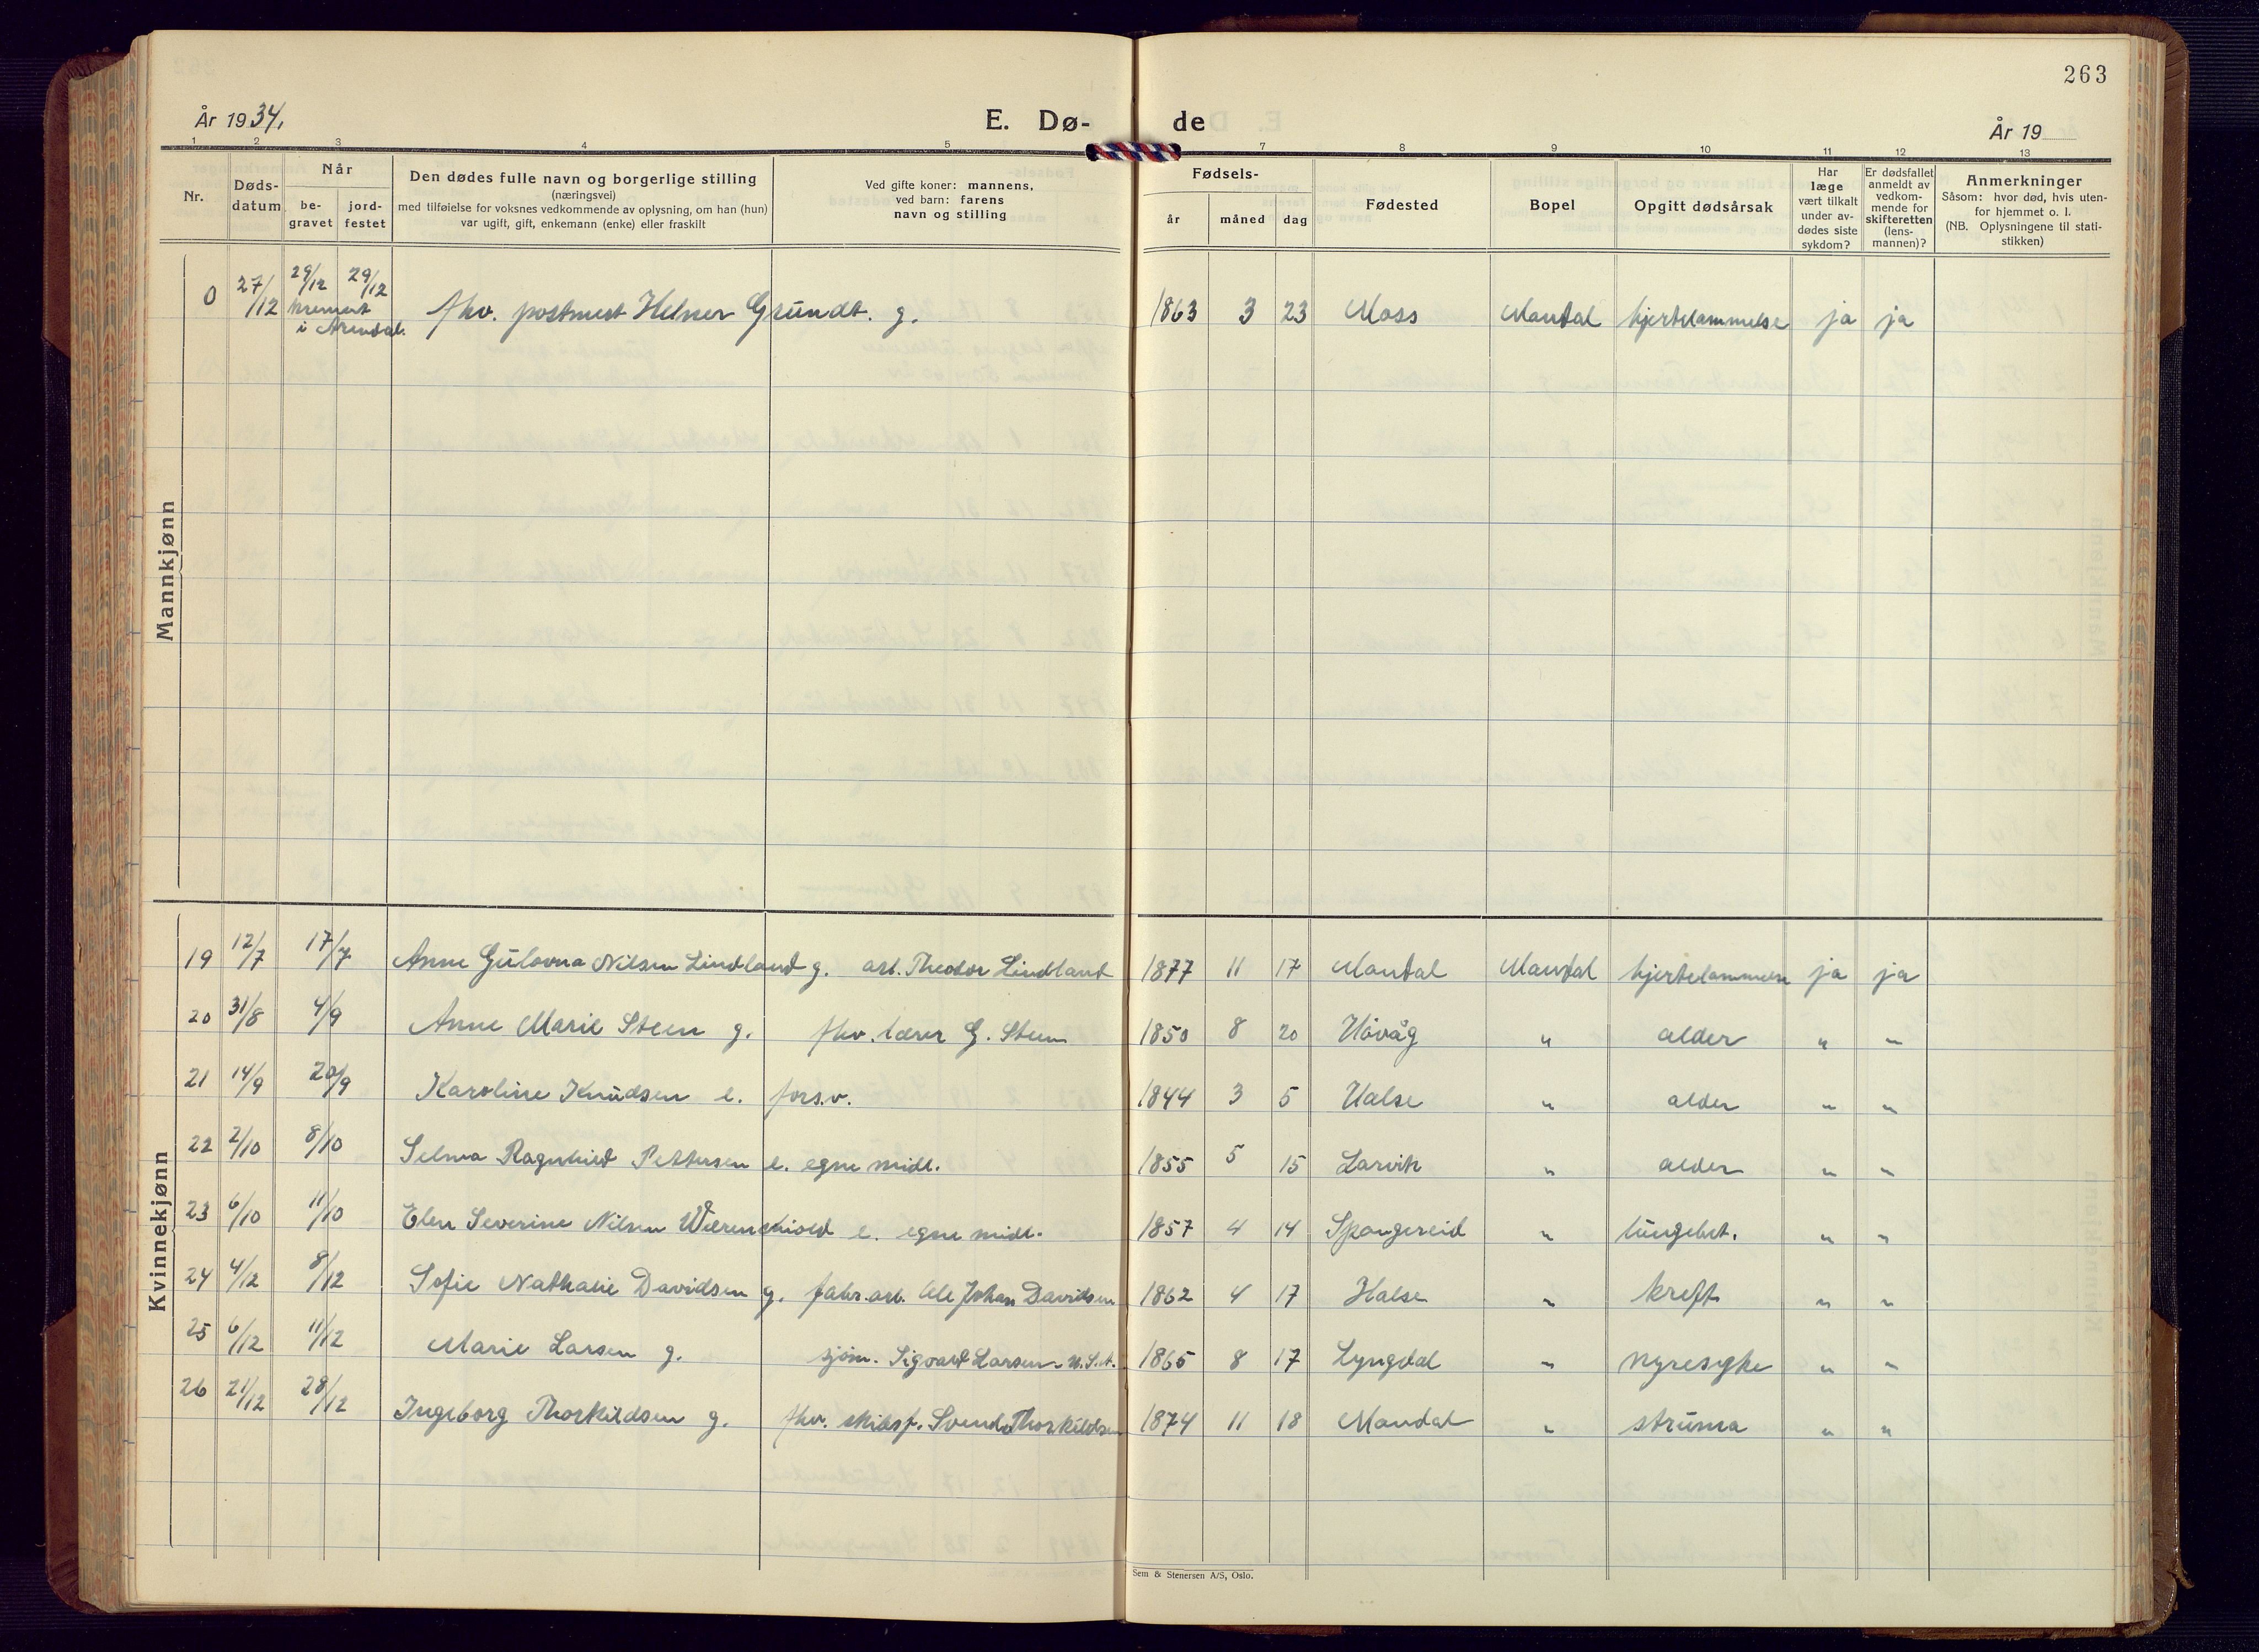 263
År 1934.
E. Dø-
de
År 19
1 2 3 4 5 7 8 9 10 11 12 13
Nr.
Døds-
datum
Når
be-
gravet
jord-
festet
Den dødes fulle navn og borgerlige stilling
(næringsvei)
med tilføielse for voksnes vedkommende av oplysning, om han (hun)
var ugift, gift, enkemann (enke) eller fraskilt
Ved gifte koner: mannens,
ved barn: farens
navn og stilling
Fødsels-
år
måned
dag
Fødested
Bopel
Opgitt dødsårsak
Har
læge
vært tilkalt
under av-
dødes siste
sykdom?
Er dødsfallet
anmeldt av
vedkom-
mende for
skifteretten
(lens-
mannen)?
Anmerkninger
Såsom: hvor død, hvis uten-
for hjemmet o. l.
(NB. Oplysningene til stati-
stikken)
Mannkjønn
0 27/12 29/12 29/12 fhv. postmest Helmer Gründt. g. 1863 3 23 Moss Mandal hjertelammelse ja ja
kremert
i Arendal.
Kvinnekjønn
19 12/7 17/7 Anne Gulovna Nilsen Lindland g. arb. Theodor Lindland 1877 11 17 Mandal Mandal hjertelammelse ja ja
20 31/8 4/9 Anne Marie Steen g. fhv. lærer G. Steen 1850 8 20 Høvåg " alder " "
21 14/9 20/9 Karoline Knudsen e. fors.v. 1844 3 5 Halse " alder " "
22 2/10 8/10 Selma Ragnhild Pettersen e. egne midl. 1855 5 15 Larvik " alder " "
23 6/10 11/10 Elen Severine Nilsen Wærenskiold e. egne midl. 1857 4 14 Spangereid " lungebet. " "
24 4/12 8/12 Sofie Nathalie Davidsen g. fabr. arb. Ole Johan Davidsen 1862 4 17 Halse " kreft " "
25 6/12 11/12 Marie Larsen g. sjøm. Sigvard Larsen - U.S.A. 1865 8 17 Lyngdal " nyresyke " "
26 21/12 28/12 Ingeborg Thorkildsen g. fhv. skibsf. Svend Thorkildsen 1874 11 18 Mandal " struma " "
Sem & Stenersen A/S, Oslo.